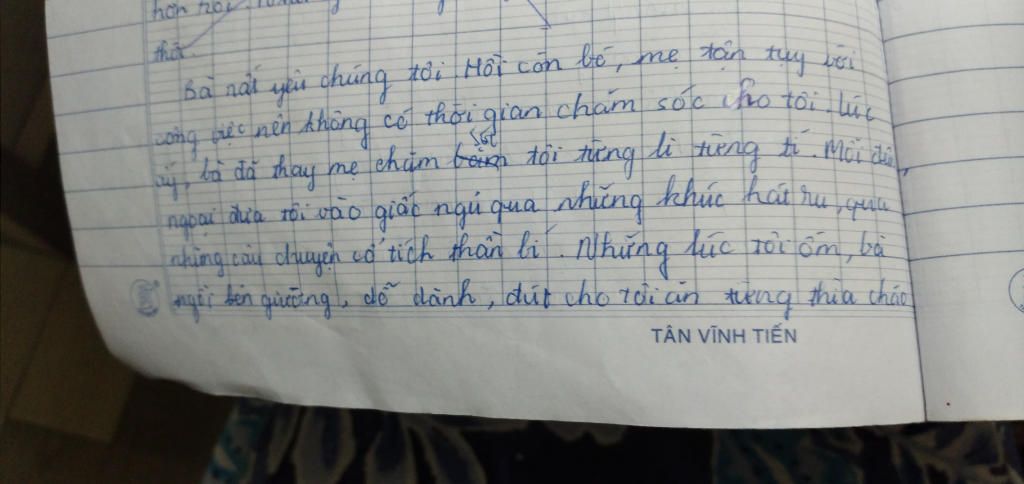 thơ.
Bà rất yêu chúng tôi Hồi còn bố, mẹ tận tụy với
công việc nên không có thời gian chăm sóc cho tôi. lúc
ấy, bà đã thay mẹ chăm sóc tôi từng li từng tí. Mỗi
ngoại đưa tôi vào giấc ngủ qua những khúc hát ru, qua
những câu chuyện cổ tích thần bí. Những lúc tôi ốm, bà
ngồi bên giường, dỗ dành, đút cho tôi ăn từng thìa cháo
TÂN VĨNH TIẾN